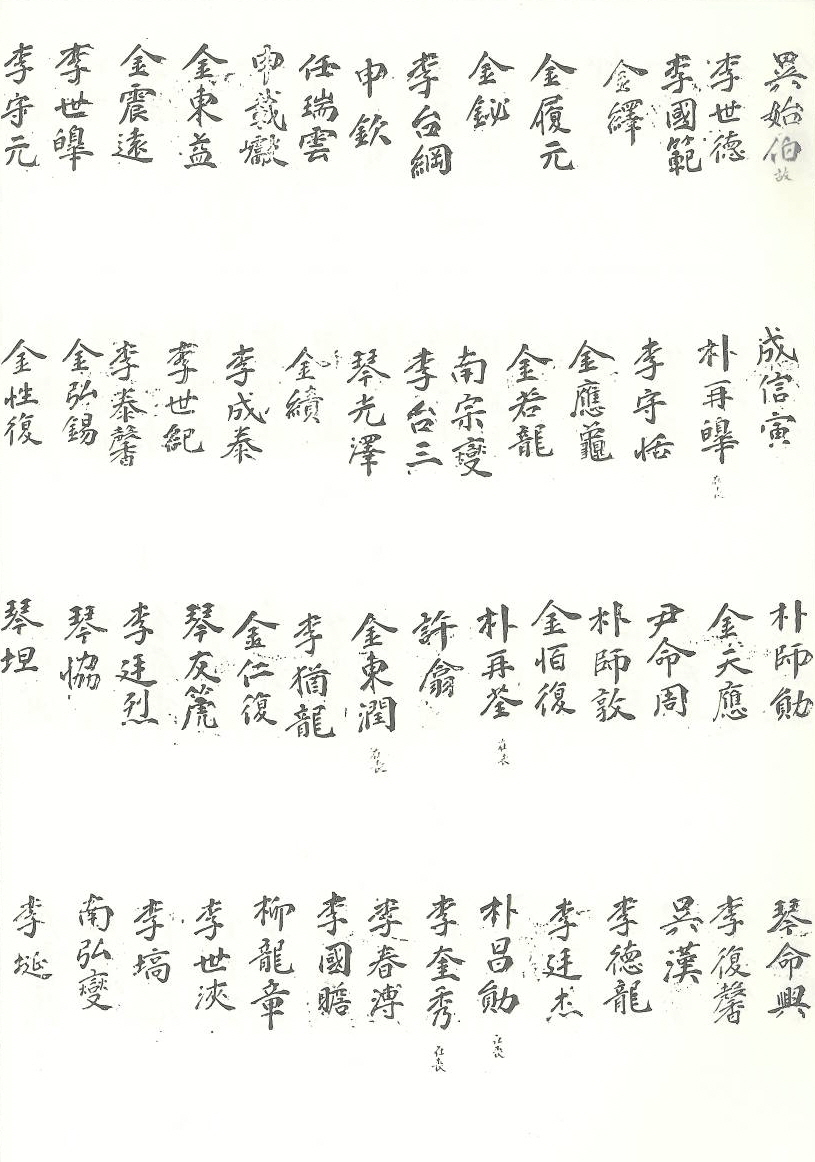 吳始伯 故
李世德
李國範
金繹
金履元
金鉍
李台綱
申欽
任瑞雲
申載巘
金東益
金震遠
李世皞
李守元
成信寅
朴再皞 在喪
李守恬
金應龜
金若龍
南宗燮
李台三
琴光澤
金續
李成泰
李世紀
李泰馨
金弘錫
金性復
朴師勛
金天應
尹命周
朴師敦
金恒復
朴再荃 在喪
許翕
金東潤 在喪
李猶龍
金仁復
琴友篪
李廷烈
琴恊
琴坦
琴命興
李復馨
吳漢
李德龍
李廷杰
朴昌勛 在喪
李奎秀 在喪
李春溥
李國瞻
柳龍章
李世浹
李塙
南弘燮
李埏